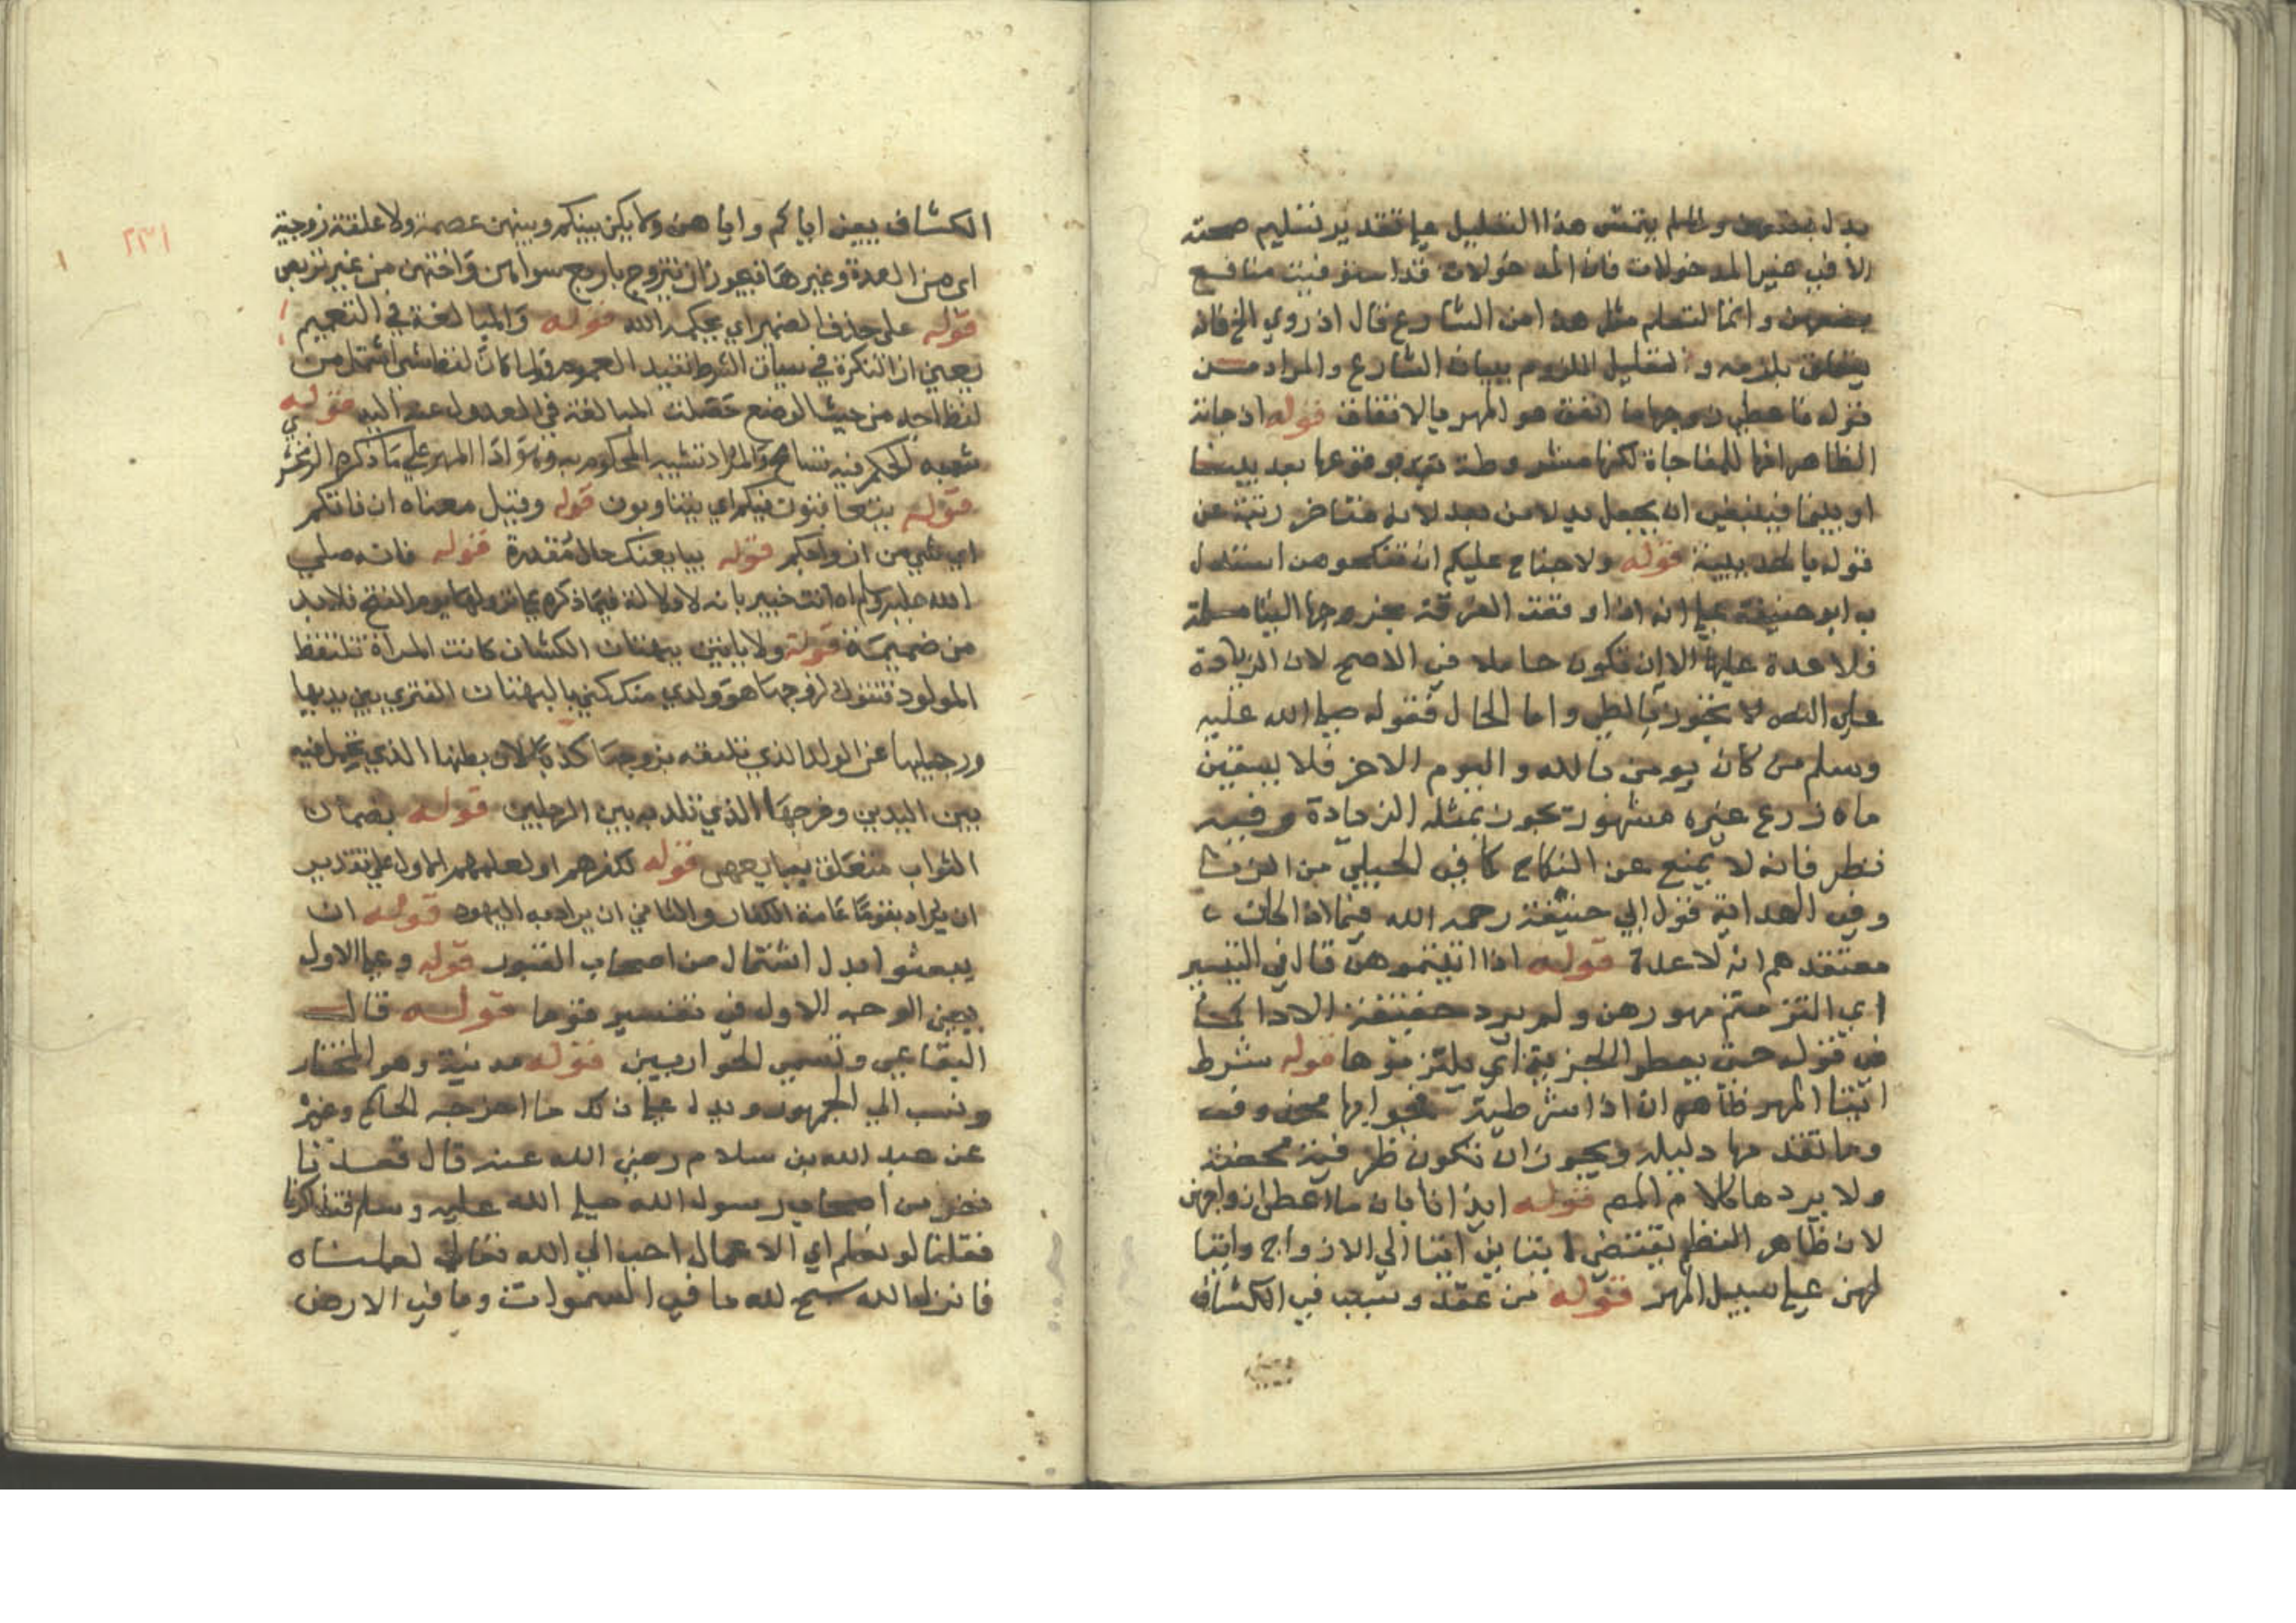 بدل بضعهن ولا يتمش هذا التعليل على تقدير تسليم صحته
الا في غير المدخولات فان المدخولات قد استوفيت منافع
بضعهن وانما لتعلم مثل هذا من الشارع قال اذ روي الخ فانه
بلزمه والتعليل الملزوم ببيان الشارع والمراد من
قوله فاعطى زوجها ما انفق هو المهر بالاتفاق قوله اذ جاءته
الظاهر انها للمفاجاة لكنها مشروطة بوقوعها بعد بينا
او بينما فينبغي ان يجعل بدلا من بعد لانه متاخر رتبة عن
قوله بالحديبية قوله ولا جناح عليكم ان تنكحوهن استدل
به ابو حنيفة على انه اذا وقعت الفرقة بخروجها الينا مسلمة
فلا عدة عليها الا ان تكون حاملا في الاصح لان الزيادة
على النص لا يجوز بالظن واما الحال فقوله صلى الله عليه
وسلم من كان يومن بالله واليوم الاخر فلا يسقين
ماه زرع غيره مشهور تجوز بمثله الزيادة وفيه
نظر فانه لا يمنع عن النكاح كما في الحبلى من الزنا
وفي الهداية قول ابي حنيفة رحمه الله فيما اذا كان
معتقدهم انه لا عدة قوله اذا اتيتموهن قال في التيسير
اي التزمتم مهورهن ولم يرد حقيقة الادا كما
في قوله حتى يعطوا الجزية اي يلتزموها قوله شرط
ايتا المهر ظاهره ان اذا شرطية فجوابها محذوف
وما تقدمها دليله ويجوز ان تكون ظرفية محضة
ولا يردها كلام المص قوله ايذانا بان ما اعطى ازواجهن
لان ظاهر النظم يقتضي ايتاين ايتا الى الازواج وايتا
لهن على سبيل المهر قوله من عقد وسبب في الكشاف
يعني
٢٣١
الكشاف يعني اياكم واياهن ولا يكن بينكم وبينهن عصمة ولا علقة زوجية
اي من العدة وغيرها فيجوز ان يتزوج باربع سواهن واختهن من غير تربص
قوله على حذف الضمير اي يحكمه الله قوله والمبالغة في التعميم
يعني ان النكرة في سياق الشرط تفيد العموم ولما كان لفظ شي اشمل من
لفظ احد من حيث الوضع حصلت المبالغة في العدول عنه اليه قوله
شبه الحكم فيه تسامح والمراد تشبيه المحكوم به وهو ادا المهر على ما ذكره الزمخشري
قوله فيكم اي قوله وقيل معناه ان فاتكم
اي شي من ازواجكم قوله يبايعنك حال مقدرة قوله فانه صلى
الله عليه وسلم اه انت خبير بانه لا دلالة فيما ذكره على نزولها يوم الفتح فلا بد
من ضميمة قوله ولا ياتين ببهتان الكشاف كانت المراة تلتقط
المولود فتقول لزوجها هو ولدي منك كنى بالبهتان المفترى بين يديها
ورجليها عن الولد الذي تلصقه بزوجها كذبا لان بطنها الذي تحمل فيه
بين اليدين وفرجها الذي تلد به بين الرجلين قوله بضمان
الثواب متعلق بيبايعهن قوله لكفرهم او لعلمهم الاول على تقدير
ان يراد بقوما عامة الكفار والثاني ان يراد به اليهود قوله ان
يبعثوا بدل اشتمال من اصحاب القبور قوله وعلى الاول
يعني الوجه الاول في تفسير قوما قوله قال
البقاعي وتسمى الحواريين قوله مدنية وهو المختار
ونسب الى الجمهور ويدل على ذلك ما اخرجه الحاكم وغيره
عن عبد الله بن سلام رضي الله عنه قال قعدنا
نفر من اصحاب رسول الله صلى الله عليه وسلم فتذاكرنا
فقلنا لو نعلم اي الاعمال احب الى الله تعالى لعملناه
فانزل الله سبح لله ما في السموات وما في الارض